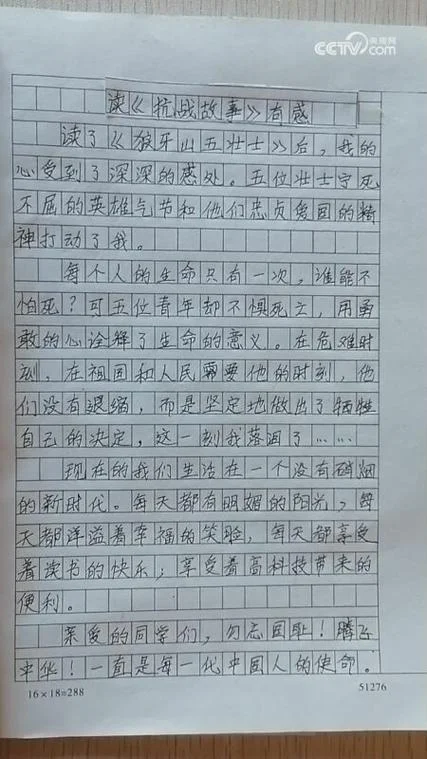 央视网
CCTV.com
读《抗战故事》有感
读了《狼牙山五壮士》后，我的
心受到了深深的感处。五位壮士宁死
不屈的英雄气节和他们忠贞爱国的精
神打动了我。
每个人的生命只有一次，谁能不
怕死？可五位青年却不惧死亡，用勇
敢的心诠释了生命的意义。在危难时
刻，在祖国和人民需要他的时刻，他
们没有退缩，而是坚定地做出了牺牲
自己的决定，这一刻我落泪了……
现在的我们生活在一个没有硝烟
的新时代。每天都有明媚的阳光，每
天都洋溢着幸福的笑脸，每天都享受
着读书的快乐；享受着高科技带来的
便利。
亲爱的同学们，勿忘国耻！腾飞
中华！一直是每一代中国人的使命。
16×18=288
51276